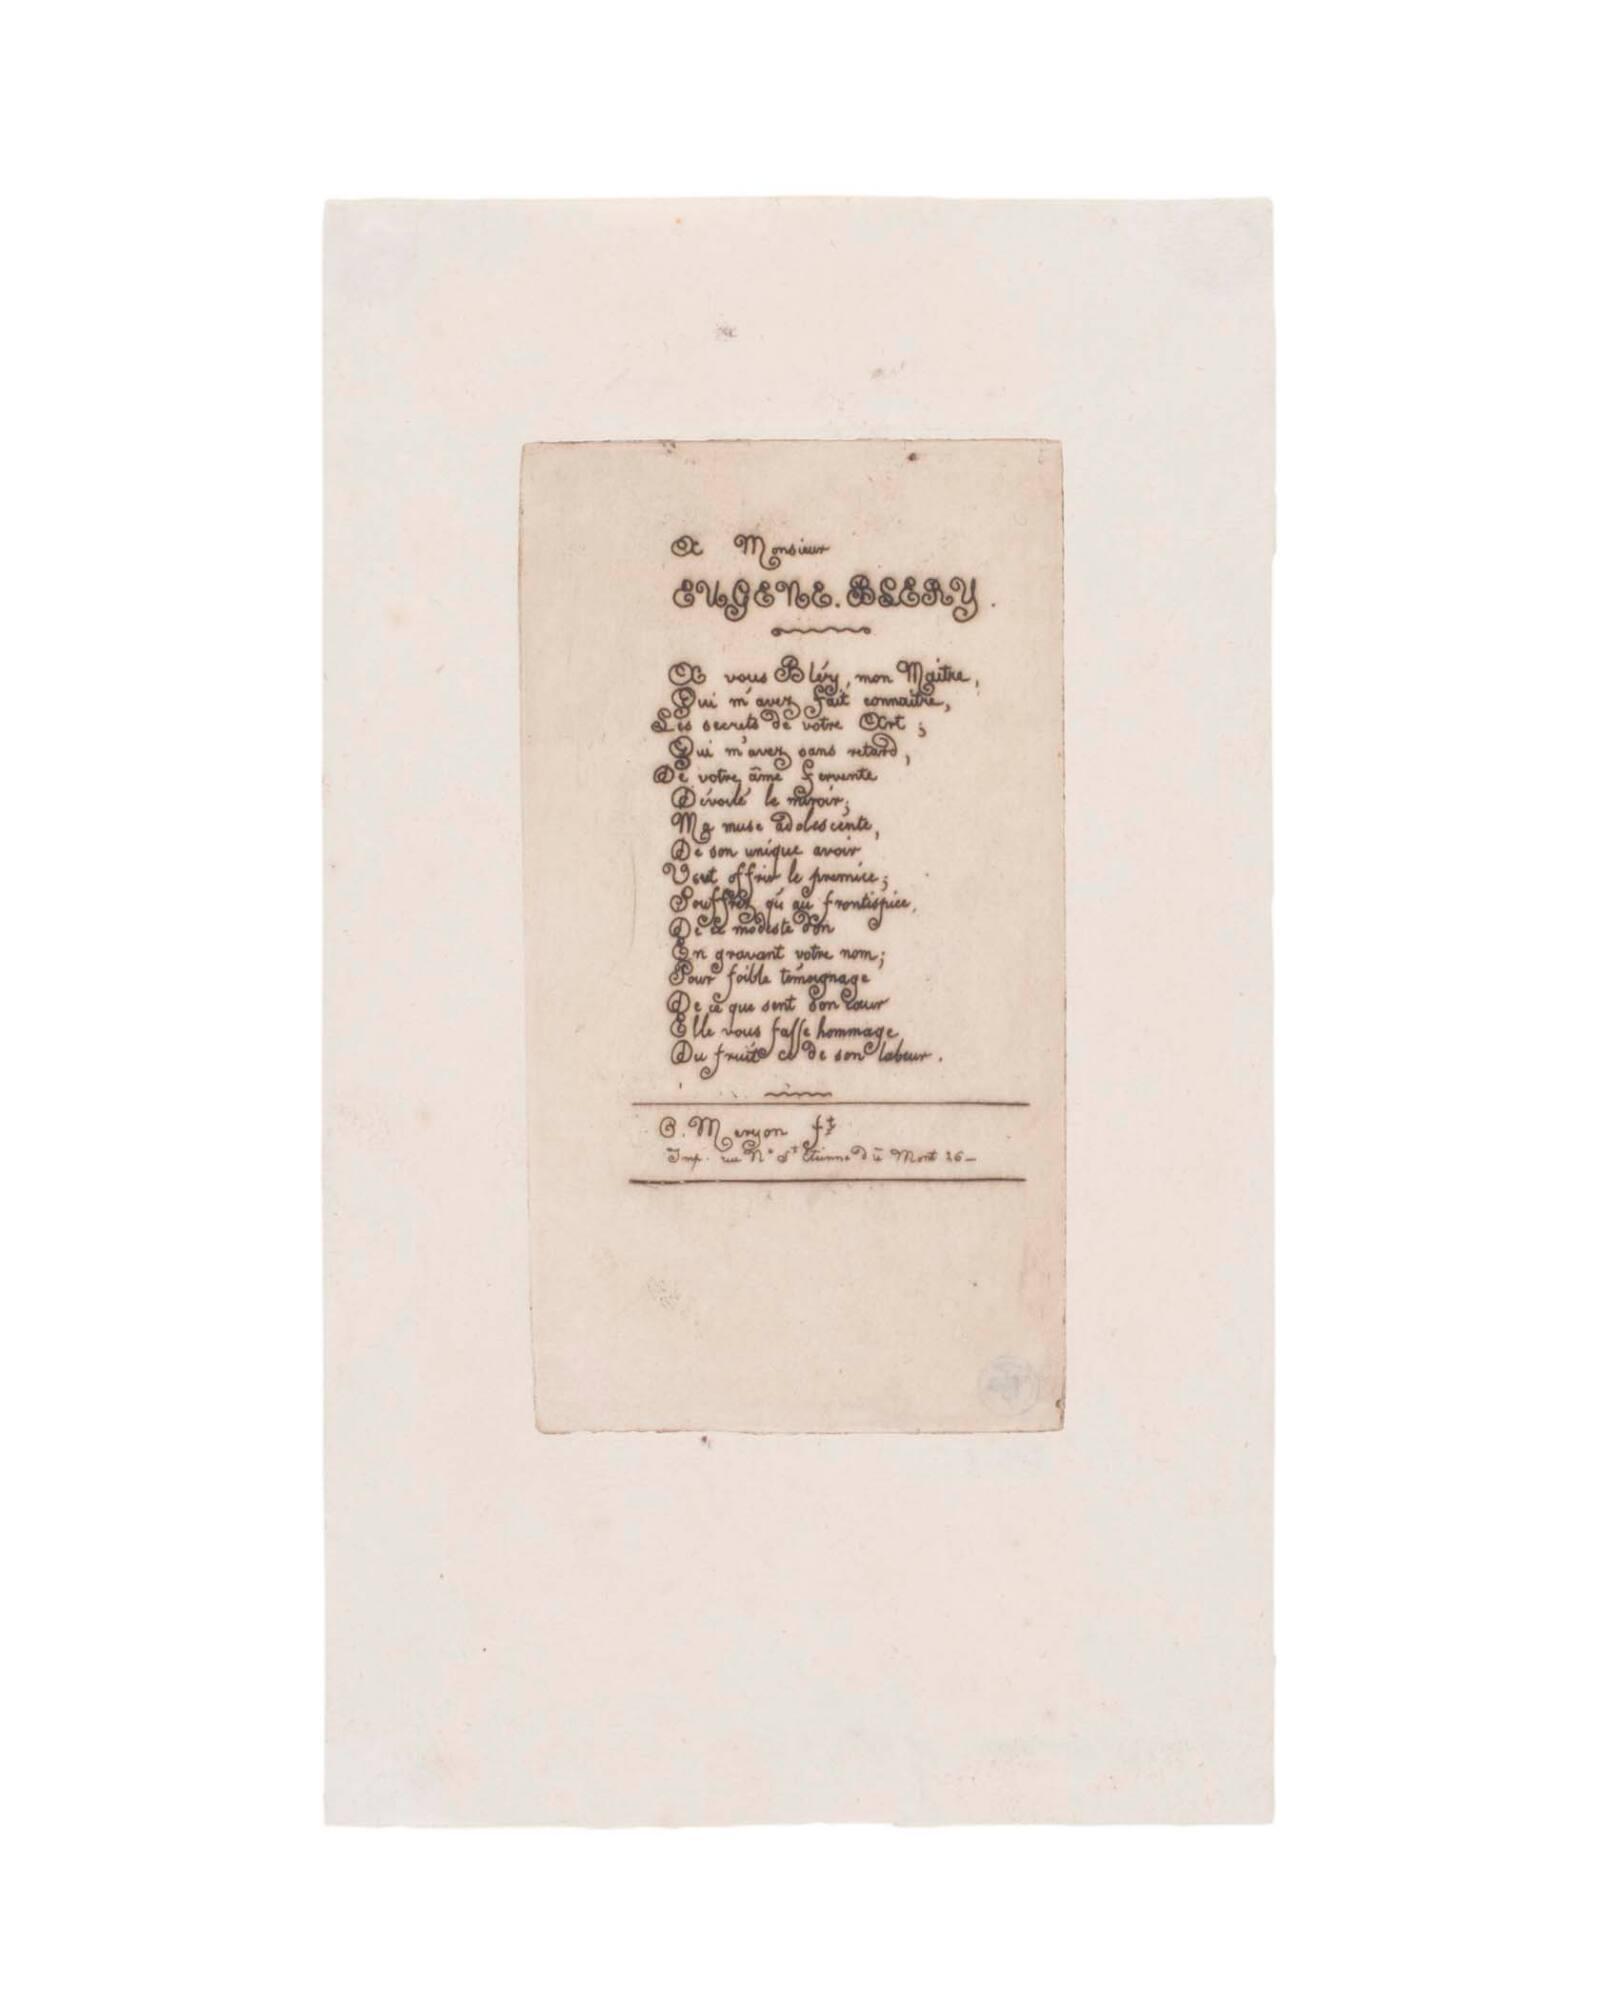 A Monsieur
EUGENE. BLERY.
A vous Bléry, mon Maitre,
Qui m'avez fait connaitre,
Les secrets de votre Art;
Qui m'avez sans retard,
De votre âme fervente
Dévoilé le miroir;
Ma muse adolescente,
De son unique avoir
Veut offrir le premice;
Souffrez qu'au frontispice,
De ce modeste don
En gravant votre nom;
Pour foible témoignage
De ce que sent son cœur
Elle vous fasse hommage
Du fruit de son labeur.
C. Meryon ft
Imp. rue Ne St Etienne du Mont 26_